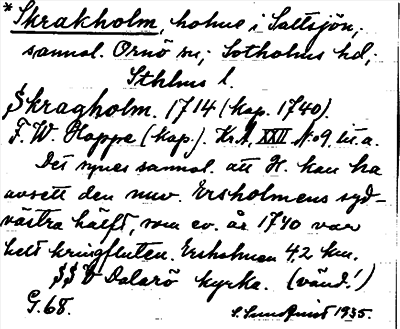 *Skrakholm, holme i Saltsjön;
sannol. Ornö sn; Sotholms hd;
Sthlms l.
Skragholm. 1714 (kop. 1740).
F. W. Hoppe (kop.). KrA XXII N:o 9 lit. a.
Det synes sannol. att H. kan ha
avsett den nuv. Ersholmens syd-
västra hälft, som ev. år 1740 var
helt kringfluten. Ersholmen 4,2 km.
SSV Dalarö kyrka. (vänd!)
G. 68. S. Sundquist 1935.